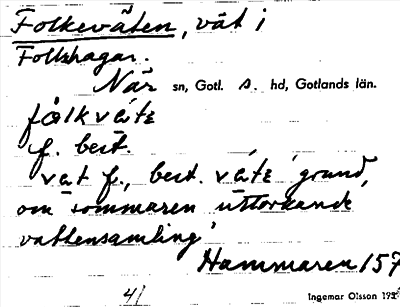 Folkeväten, vät i
Folkhagar.
När sn, Gotl. s. hd, Gotlands län.
fålkvátε
f. best.
vät f., best. vátε 'grund,
om sommaren uttorkande
vattensamling'
Hammaren 157
4/ Ingemar Olsson